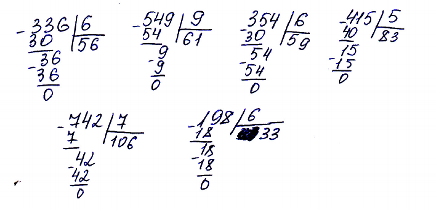 -336|6 -549|9 -354|6 -415|5
30 |56 54 |61 30 |59 40 |83
-36 9 54 15
36 -9 -54 -15
0 0 0 0
-742|7 -198|6
7 |106 18 |33
-42 -18
42 18
0 0